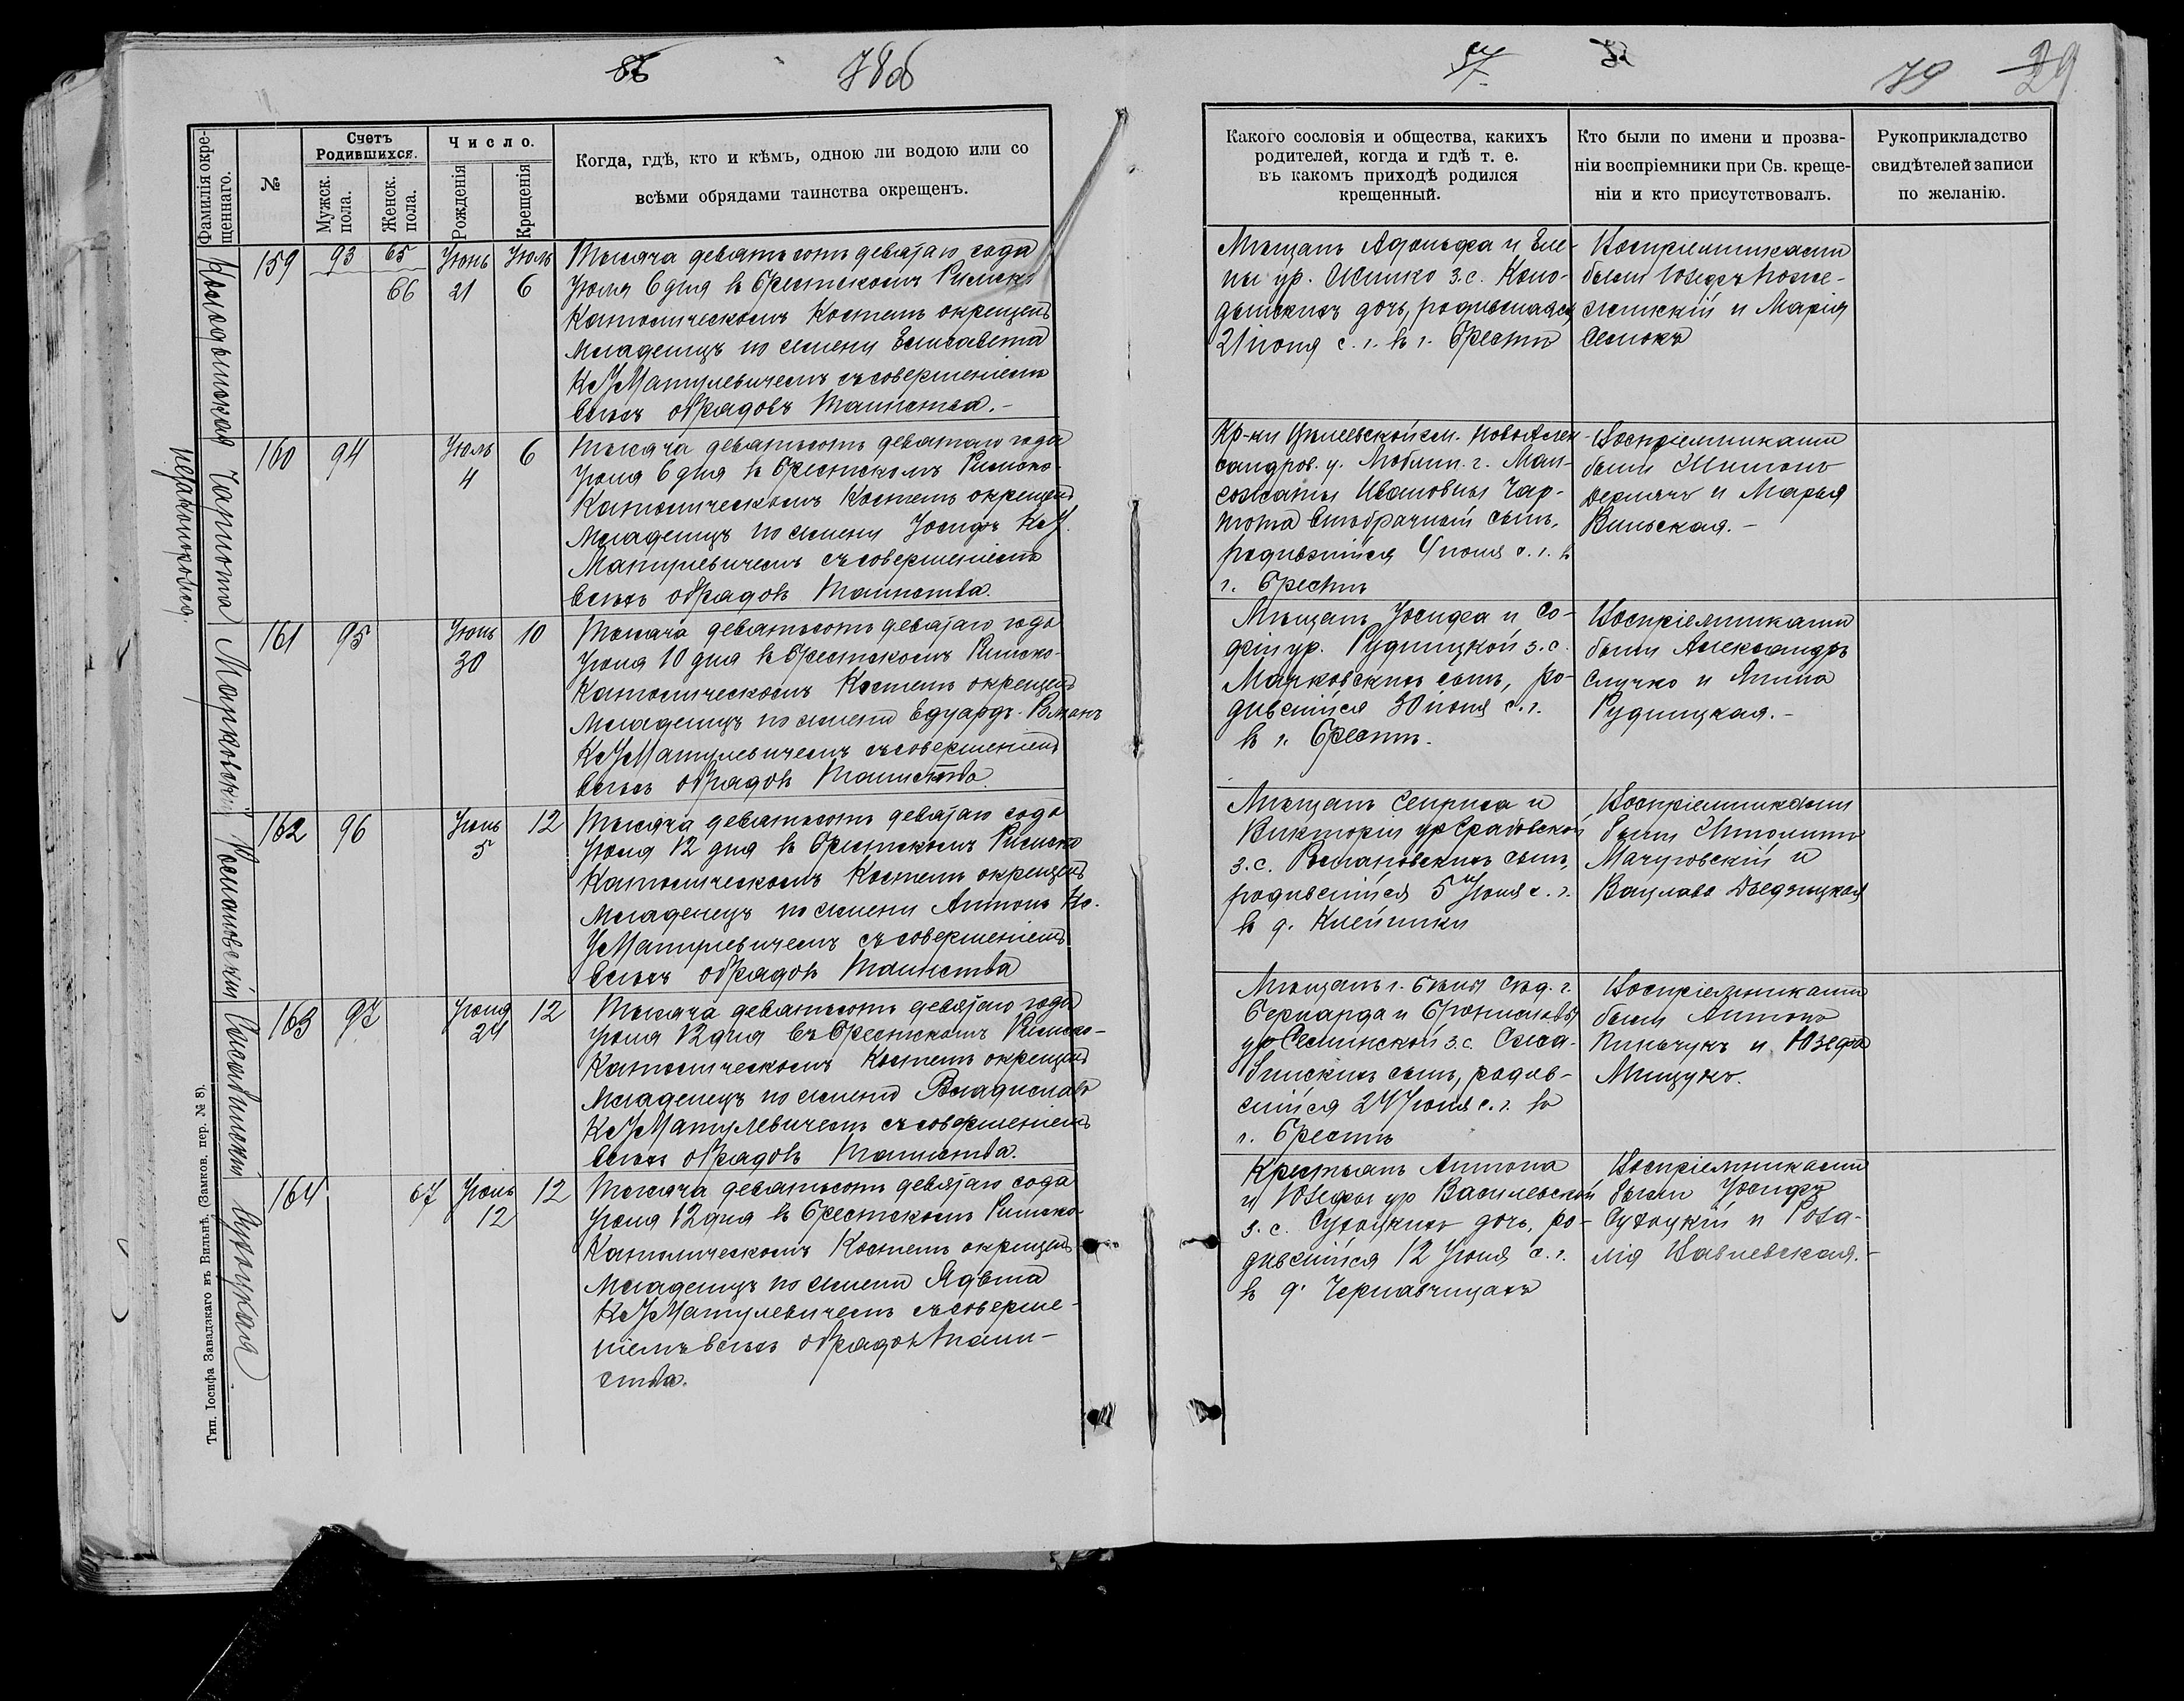 86
78об
Фамилія окре-
щеннаго.
№
Счетъ
Родившихся.
Мужск.
пола.
Женск.
пола.
Число.
Рожденія
Крещенія
Когда, гдѣ, кто и кѣмъ, одною ли водою или со
всѣми обрядами таинства окрещенъ.
159 93 65 Іюнь Іюль
66 21 6
Тысяча девятьсотъ девятаго года
Іюля 6 дня въ Брестскомъ Римско
Католическомъ Костелѣ окрещенъ
младенецъ по имени Елисавета
Кс. І. Матулевичемъ съ совершеніемъ
всѣхъ обрядовъ Таинства.-
160 94 Іюль 6
4
Чапнота
незаконнорожд.
Тысяча девятьсотъ девятаго года
Іюля 6 дня въ Брестскомъ Римско-
Католическомъ Костелѣ окрещенъ
младенецъ по имени Іосифъ Кс. І.
Матулевичемъ съ совершеніемъ
всѣхъ обрядовъ Таинства.
161 95 Іюнь 10
30
Марковскій
Тысяча девятьсотъ девятаго года
Іюля 10 дня въ Брестскомъ Римско-
Католическомъ Костелѣ окрещенъ
младенецъ по имени Едуардъ-
Кс. І. Матулевичемъ съ совершеніемъ
всѣхъ обрядовъ Таинства.
162 96 Іюль 12
5
Романовскій
Тысяча девятьсотъ девятаго года
Іюля 12 дня въ Брестскомъ Римско
Католическомъ Костелѣ окрещенъ
младенецъ по имени Антонъ Кс.
І. Матулевичемъ съ совершеніемъ
всѣхъ обрядовъ Таинства
163 97 Іюня 12
24
Тысяча девятьсотъ девятаго года
Іюля 12 дня въ Брестскомъ Римско-
Католическомъ Костелѣ окрещенъ
младенецъ по имени Владиславъ
Кс. І. Матулевичемъ съ совершеніемъ
всѣхъ обрядовъ Таинства.
164 67 Іюль 12
12
Тысяча девятьсотъ девятаго года
Іюля 12 дня въ Брестскомъ Римско-
Католическомъ Костелѣ окрещенъ
младенецъ по имени Ядвига
Кс. І. Матулевичемъ съ соверше-
ніемъ всѣхъ обрядовъ Таин-
ства.
Тип. Іосифа Завадзкаго въ Вильнѣ, (Замков. пер. № 8).
79 29
Какого сословія и общества, какихъ
родителей, когда и гдѣ т. е.
въ какомъ приходѣ родился
крещенный.
Кто были по имени и прозва-
ніи воспріемники при Св. креще-
ніи и кто присутствовалъ.
Рукоприкладство
свидѣтелей записи
по желанію.
Мѣщанъ Адольфа и Еле-
ны ур. з.с. Коло-
дынскихъ дочь, родившаяся
21 іюня с. г. въ г. Брестѣ
Воспріемниками
были Юзефъ
и Марія
Кр-ки Новоалек-
сандров. у. Люблин. г. Ман-
Ивановны Чап-
нота внѣбрачный сынъ,
родившійся 4 іюля с. г. въ
г. Брестѣ
Воспріемниками
были
и Марья
Вильская.-
Мѣщанъ Іосифа и Со-
фіи ур. Рудницкой з.с.
Марковскихъ сынъ, ро-
дившійся 30 іюня с. г.
въ г. Брестѣ.
Воспріемниками
были Александръ
Случко и Янина
Рудницкая.-
Мѣщанъ и
Викторіи ур.
з.с. Романовскихъ сынъ,
родившійся 5 Іюля с. г.
въ д. Клейники
Воспріемниками
были
и
Вацлава
Мѣщанъ г. Бѣлы Сѣд. г.
Бернарда и Брониславы
ур. з.с.
сынъ, родив-
шійся 24 Іюня с. г. въ
г. Брестѣ
Воспріемниками
были Антонъ
Пинчукъ и Юзефа
Крестьянъ Антона
и Юзефы ур. Василевской
з.с. дочь, ро-
дившійся 12 Іюля с. г.
въ д. Чернавчицахъ
Воспріемниками
были Іосифъ
и Роза-
лія